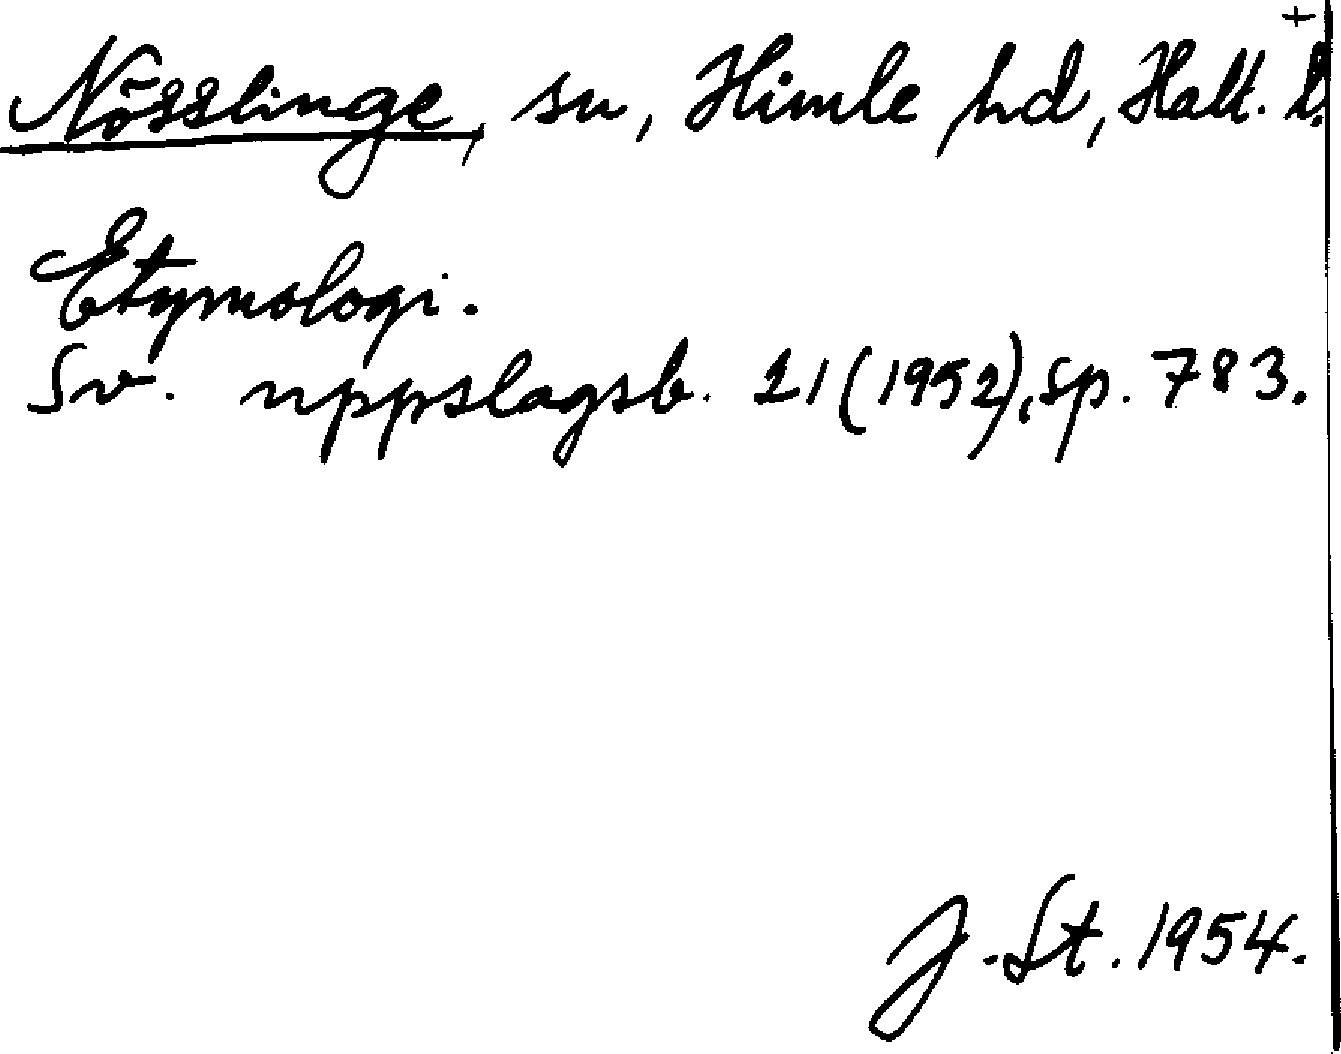 +
Nösslinge, sn, Himle hd, Hall. l.
Etymologi.
Sv. uppslagsb. 21 (1952), sp. 783.
J. St. 1954.